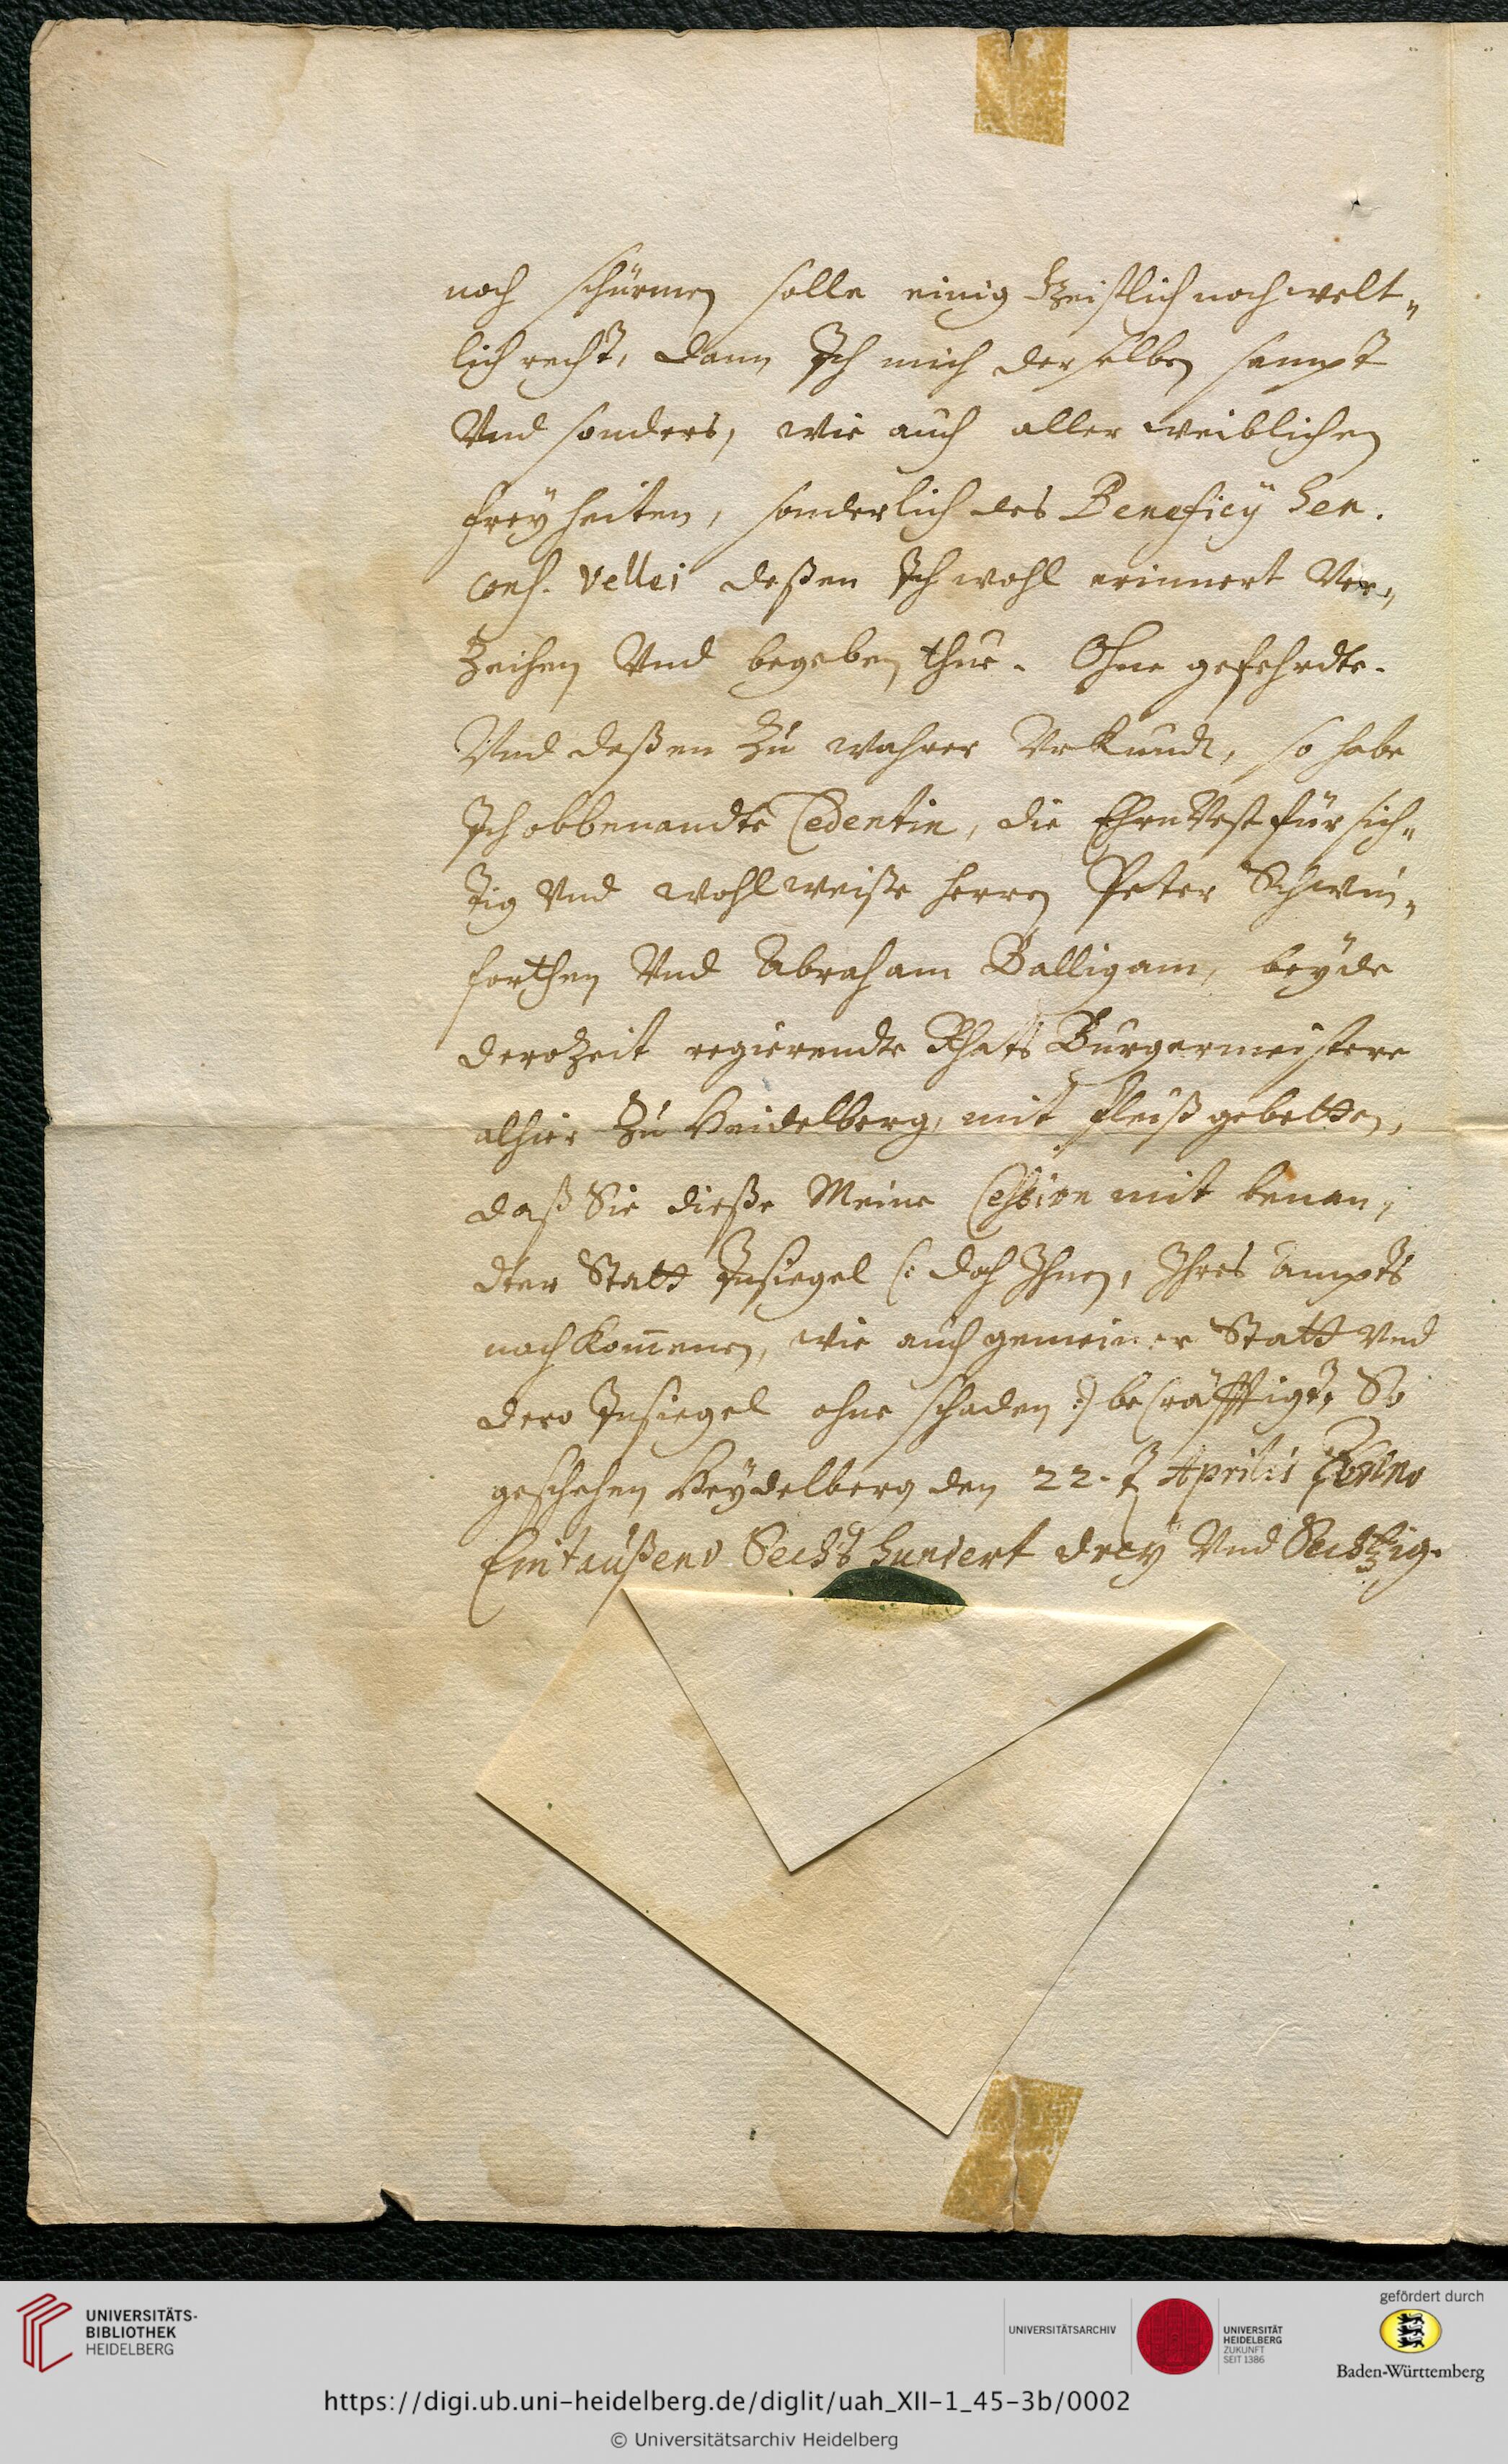 noch schürmen solle einig Geistlich noch welt„
lich recht, dann Ich mich derselben sampt
Vnd sonders, wie auch aller weiblichen
freyheiten, sonderlich des Beneficÿ Sen.
Cons. Vellei deßen Ich wohl erinnert Ver„
Zeihen Vnd begeben thue. Ohne gefehrdte.
Vnd deßen Zu wahrer Vrkundt, so habe
Ich obbenandte Cedentin, die EhrnVest fürsich„
tig Vnd wohlweiße herren Peter Schwein„
forthen Vnd Abraham Balligam, beÿde
derozeit regierendte Rhats Burgermeistere
alhier Zu Heidelberg, mit fleiß gebetten,
daß Sie dieße Meine Cession mit benan„
dter Statt Insiegel (: doch Ihnen, Ihres Ampts
nachkom̄enen, wie auch gemeiner Statt Vnd
dero Insiegel ohne schaden :) becräfftigt, So
geschehen Heÿdelberg den 22. t Aprilis Anno
Eintaußend Sechs hundert dreÿ Vnd Sechtzig.
UNIVERSITÄTS-
BIBLIOTHEK
HEIDELBERG
UNIVERSITÄTSARCHIV
UNIVERSITÄT
HEIDELBERG
ZUKUNFT
SEIT 1386
gefördert durch
Baden-Württemberg
https://digi.ub.uni-heidelberg.de/diglit/uah_XII-1_45-3b/0002
© Universitätsarchiv Heidelberg